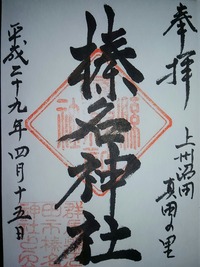 奉拝
上州沼田
真田の里
榛名神社
平成二十九年四月十五日